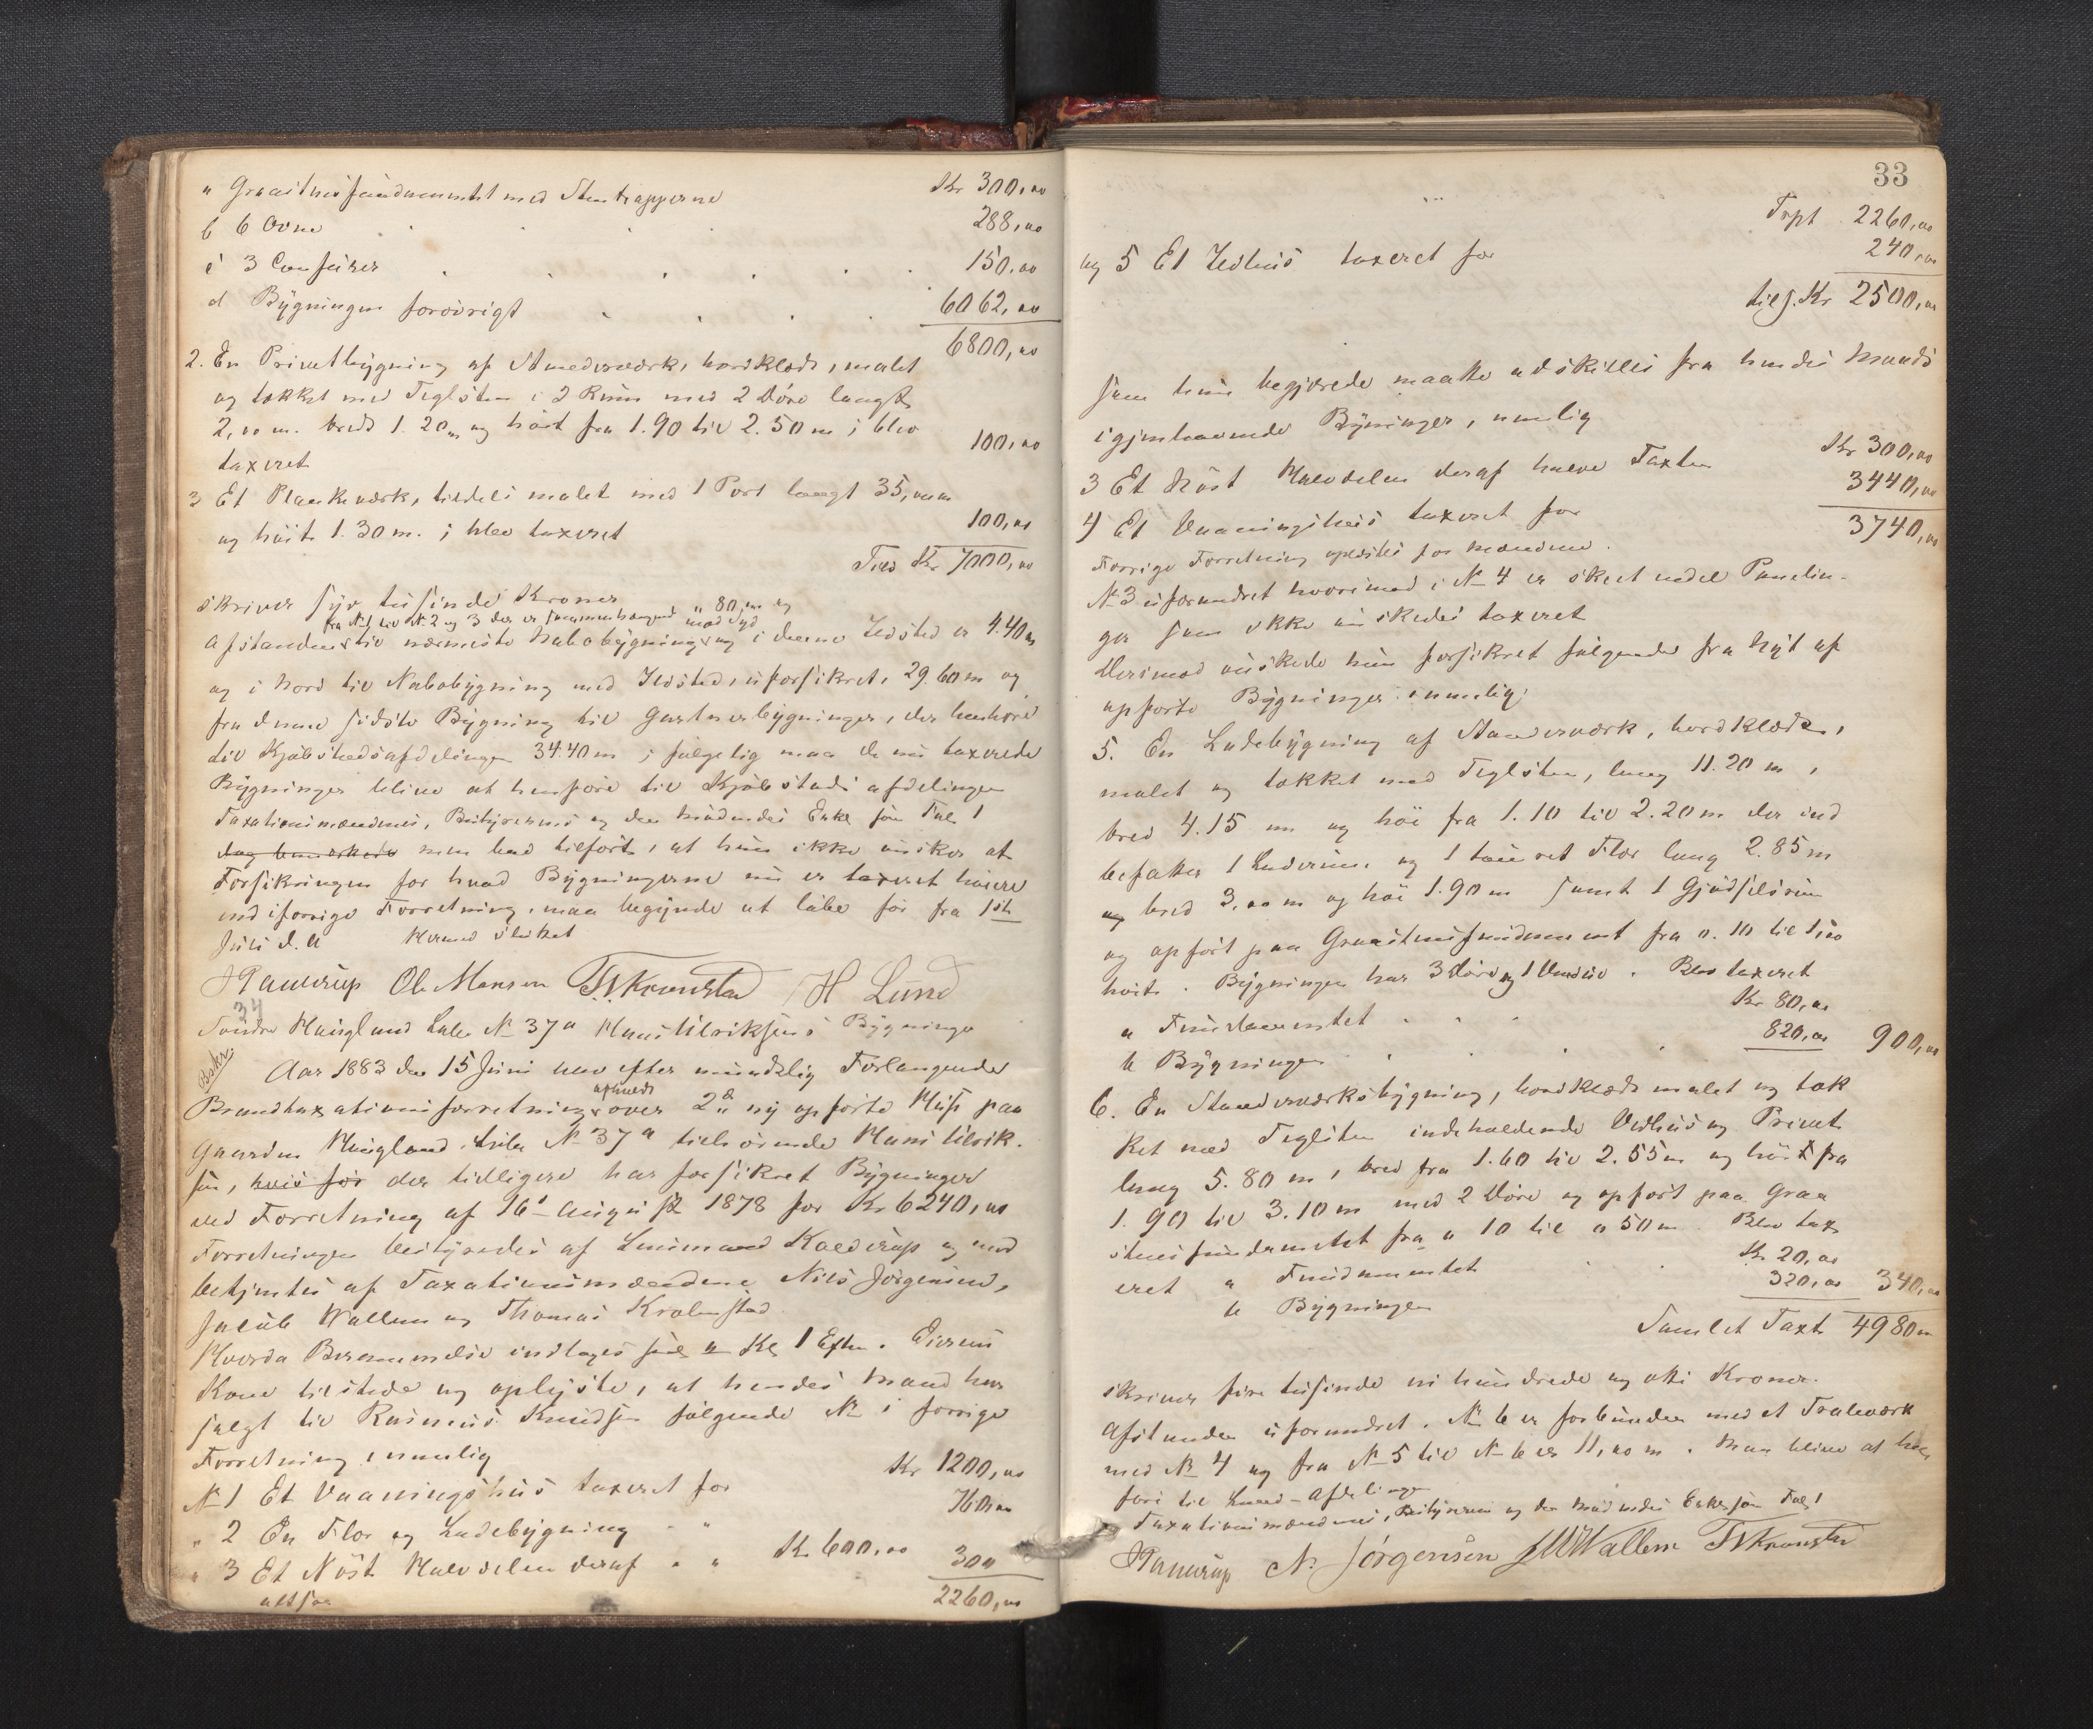 a Graastensfundamentet med Stentrapperne Kr 300,00
b 6 Ovne 288,00
c 3 Comfurer 150,00
d Bygningen forøvrigt 6062,00
6800,00
2. En Privetbygning af Standverværk, bordklædt, malet
og tækket med Teglsten i 2 Rum med 2 Døre langt
2,00 m. bredt 1.20 m og høit fra 1.90 til 2.50 m; blev
taxeret 100,00
3 Et Plankeværk, tildels malet med 1 Port langt 35,00 m
og høit 1.30 m.; blev taxeret 100,00
Tils Kr 7000,00
skriver syv tusinde Kroner
fra No 1 til No 2 og 3 der er sammenhængende 80 m og
Afstanden til nærmeste Nabobygning mod Syd og i denne Ildsted er 4.40 m
og i Nord til Nabobygning med Ildsted, uforsikret, 29.60 m og
fra denne sidste Bygning til Gartnerbygninger, der henhøre
til Kjøbstadsafdelingen 34.40 m; følgelig maa de nu taxerede
Bygninger blive at henføre til Kjøbstads afdelingen
Taxationsmændenes, Bestyrerens og den mødendes Enke som Tal 1
dog bemærkede men bad tilført, at hun ikke ønsker at
Forsikringen for hvad Bygningerne nu er taxeret høiere
end i forrige Forretning, maa begynde at løbe før fra 1ste
Juli d. A Hermed sluttet
Ole Monsen TK Kronstad H Lund
34
Søndre Haugland Løbe No 37a Hans Ulriksens Bygninger
Beskr.
Aar 1883 den 15 Juni blev efter mundtlig Forlangende
afholdt
Brandtaxationsforretning over 2de ny opførte Huse paa
Gaarden Haugland, Løbe No 37a tilhørende Hans Ulrik-
sen, hvis før der tidligere har forsikret Bygninger
ved Forretning af 16de August 1878 for Kr 6240,00
Forretningen bestyredes af Lensmand Kaldrup og med
betjentes af Taxationsmændene Nils Jørgensen,
Jacob Wallem og Thomas Kronstad
Hverda Berammelse indtages sees a Kl 1 Efm. Eierens
Kone tilstede og oplyste, at hendes Mand har
solgt til Rasmus Knudsen følgende No i forrige
Forretning, nemlig
No 1 Et Vaaningshus taxeret for Kr 1200,00
" 2 En Flor og Ladebygning " " 760,00
" 3 Et Nøst Halvdelen deraf " " Kr 600,00 300
altsaa 2260,00
33
Trpt 2260,00
og 5 Et Ildhus taxeret for 240,00
tils. Kr 2500,00
som hun begjærede maatte udskilles fra hendes Mands
igjenværende Bygninger, nemlig
3 Et Nøst Halvdelen deraf halve Taxten Kr 300,00
4 Et Vaaningshus taxeret for 3440,00
3740,00
Forrige Forretning oplæstes for Mændene.
No 3 uforandret hvorimod i No 4 er skeet endel Panelin-
ger som ikke ønskedes taxeret
Derimod ønskede hun forsikret følgende fra Nyt af
opførte Bygninger, nemlig:
5. En Ladebygning af Standerværk, bordklædt,
malet og tækket med Teglsten, lang 11.20 m,
bred 4.15 m og høi fra 1.10 til 2.20 m der ind
befatter 1 Laderum, og 1 tømret Flor lang 2.85 m
og bred 3,00 m og høi 1.90 m samt 1 Gjødselsrum
og opført paa Graastensfundament fra 0.10 til 1,00
høit. Bygningen har 3 Døre og 1 Vindue. Blev taxeret
a Fundamentet Kr 80,00
b Bygningen 820,00 900,00
6. En Standerværksbygning, bordklædt malet og tæk
ket med Teglsten indeholdende Vedhus og Privet
lang 5.80 m, bred fra 1.60 til 2.55 m og høit fra
1.90 til 3.10 m med 2 Døre og opført paa Graa
stensfundamentet fra 0 10 til 0 50 m. Blev tax
eret a Fundamentet Kr 20,00
b Bygningen 320,00 340,00
Samlet Taxt 4980,00
skriver fire tusinde ni hundrede og otti Kroner.
Afstanden uforandret. No 6 er forbunden med et Traleværk
med No 4 og fra No 5 til No 6 er 11,00 m. Man bliver at hen
føre til Land-Afdelingen
Taxationsmændenes, Bestyrerens og den mødendes Enke som Tal 1
N. Jørgensen JW Wallem TK Kronstad